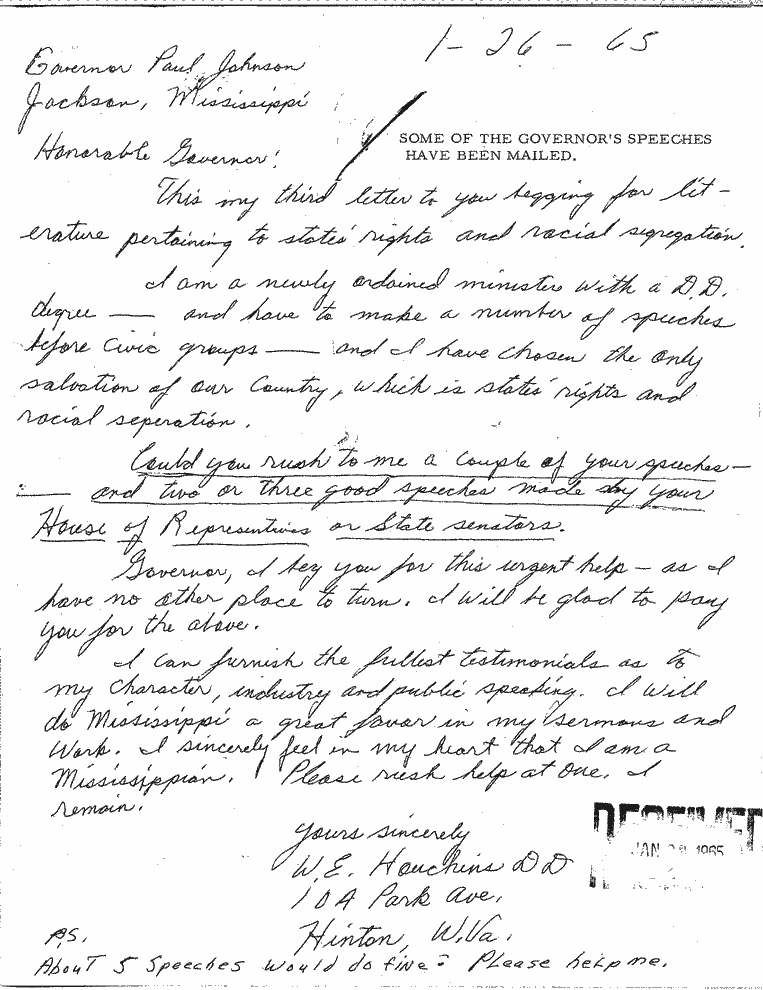 1-26-65
Governor Paul Johnson
Jackson, Mississippi
SOME OF THE GOVERNOR'S SPEECHES
HAVE BEEN MAILED.
Honorable Governor:
This my third letter to you begging for lit-
erature pertaining to states' rights and racial segregation.
I am a newly ordained minister with a D.D.
degree — and have to make a number of speeches
before Civic groups — and I have chosen the only
salvation of our Country, which is states' rights and
racial seperation.
Could you rush to me a couple of your speeches —
— and two or three good speeches made by your
House of Representives or State senators.
Governor, I beg you for this urgent help - as I
have no other place to turn. I will be glad to pay
you for the above.
I can furnish the fullest testimonials as to
my character, industry and public speaking. I will
do Mississippi a great favor in my sermons and
work. I sincerely feel in my heart that I am a
Mississippian. Please rush help at one. I
remain.
Yours sincerely
W.E. Houchins DD
10A Park Ave.
Hinton, W.Va.
RECEIVED
JAN 1965
P.S.
About 5 Speeches would do fine: Please help me.